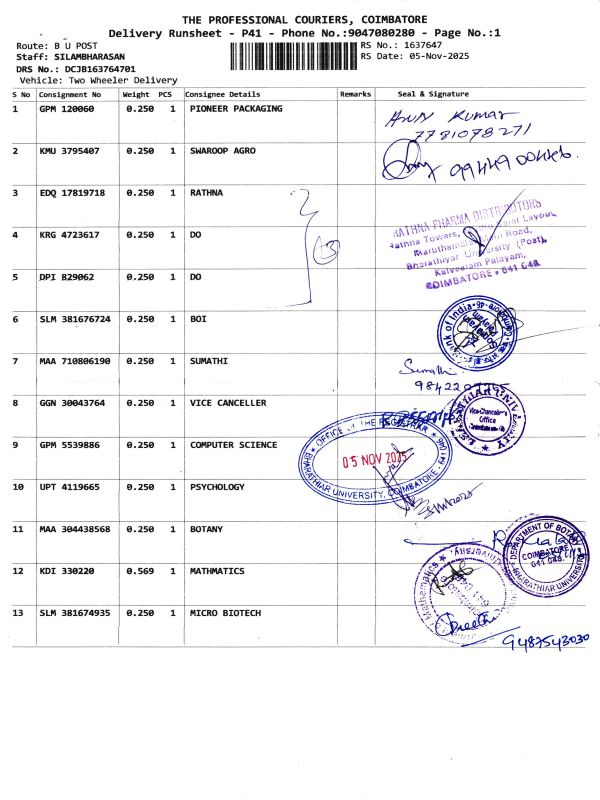 THE PROFESSIONAL COURIERS, COIMBATORE
Delivery Runsheet - P41 - Phone No.:9047080280 - Page No.:1
Route: B U POST
Staff: SILAMBHARASAN
DRS No.: DCJB163764701
Vehicle: Two Wheeler Delivery
RS No.: 1637647
RS Date: 05-Nov-2025
S No Consignment No Weight PCS Consignee Details Remarks Seal & Signature
1 GPM 120060 0.250 1 PIONEER PACKAGING
Arun Kumar
7781078271
2 KMU 3795407 0.250 1 SWAROOP AGRO
3 EDQ 17819718 0.250 1 RATHNA
RATHNA PHARMA DISTRIBUTORS
Rathna Towers, Layout,
Road,
Bharathiyar University (Post),
Kalveeram Palayam,
COIMBATORE - 641 046.
4 KRG 4723617 0.250 1 DO
(3)
5 DPI 829062 0.250 1 DO
6 SLM 381676724 0.250 1 BOI
Bank of India
7 MAA 710806190 0.250 1 SUMATHI
Sumathi
8 GGN 30043764 0.250 1 VICE CANCELLER
Vice-Chancellor's
Office
9 GPM 5539886 0.250 1 COMPUTER SCIENCE
OFFICE OF THE REGISTRAR
05 NOV 2025
BHARATHIAR UNIVERSITY, COIMBATORE - 641 046
10 UPT 4119665 0.250 1 PSYCHOLOGY
11 MAA 304438568 0.250 1 BOTANY
DEPARTMENT OF BOTANY
COIMBATORE
641 046.
BHARATHIAR UNIVERSITY
12 KDI 330220 0.569 1 MATHMATICS
Mathematics
13 SLM 381674935 0.250 1 MICRO BIOTECH
Preethi
9487543030